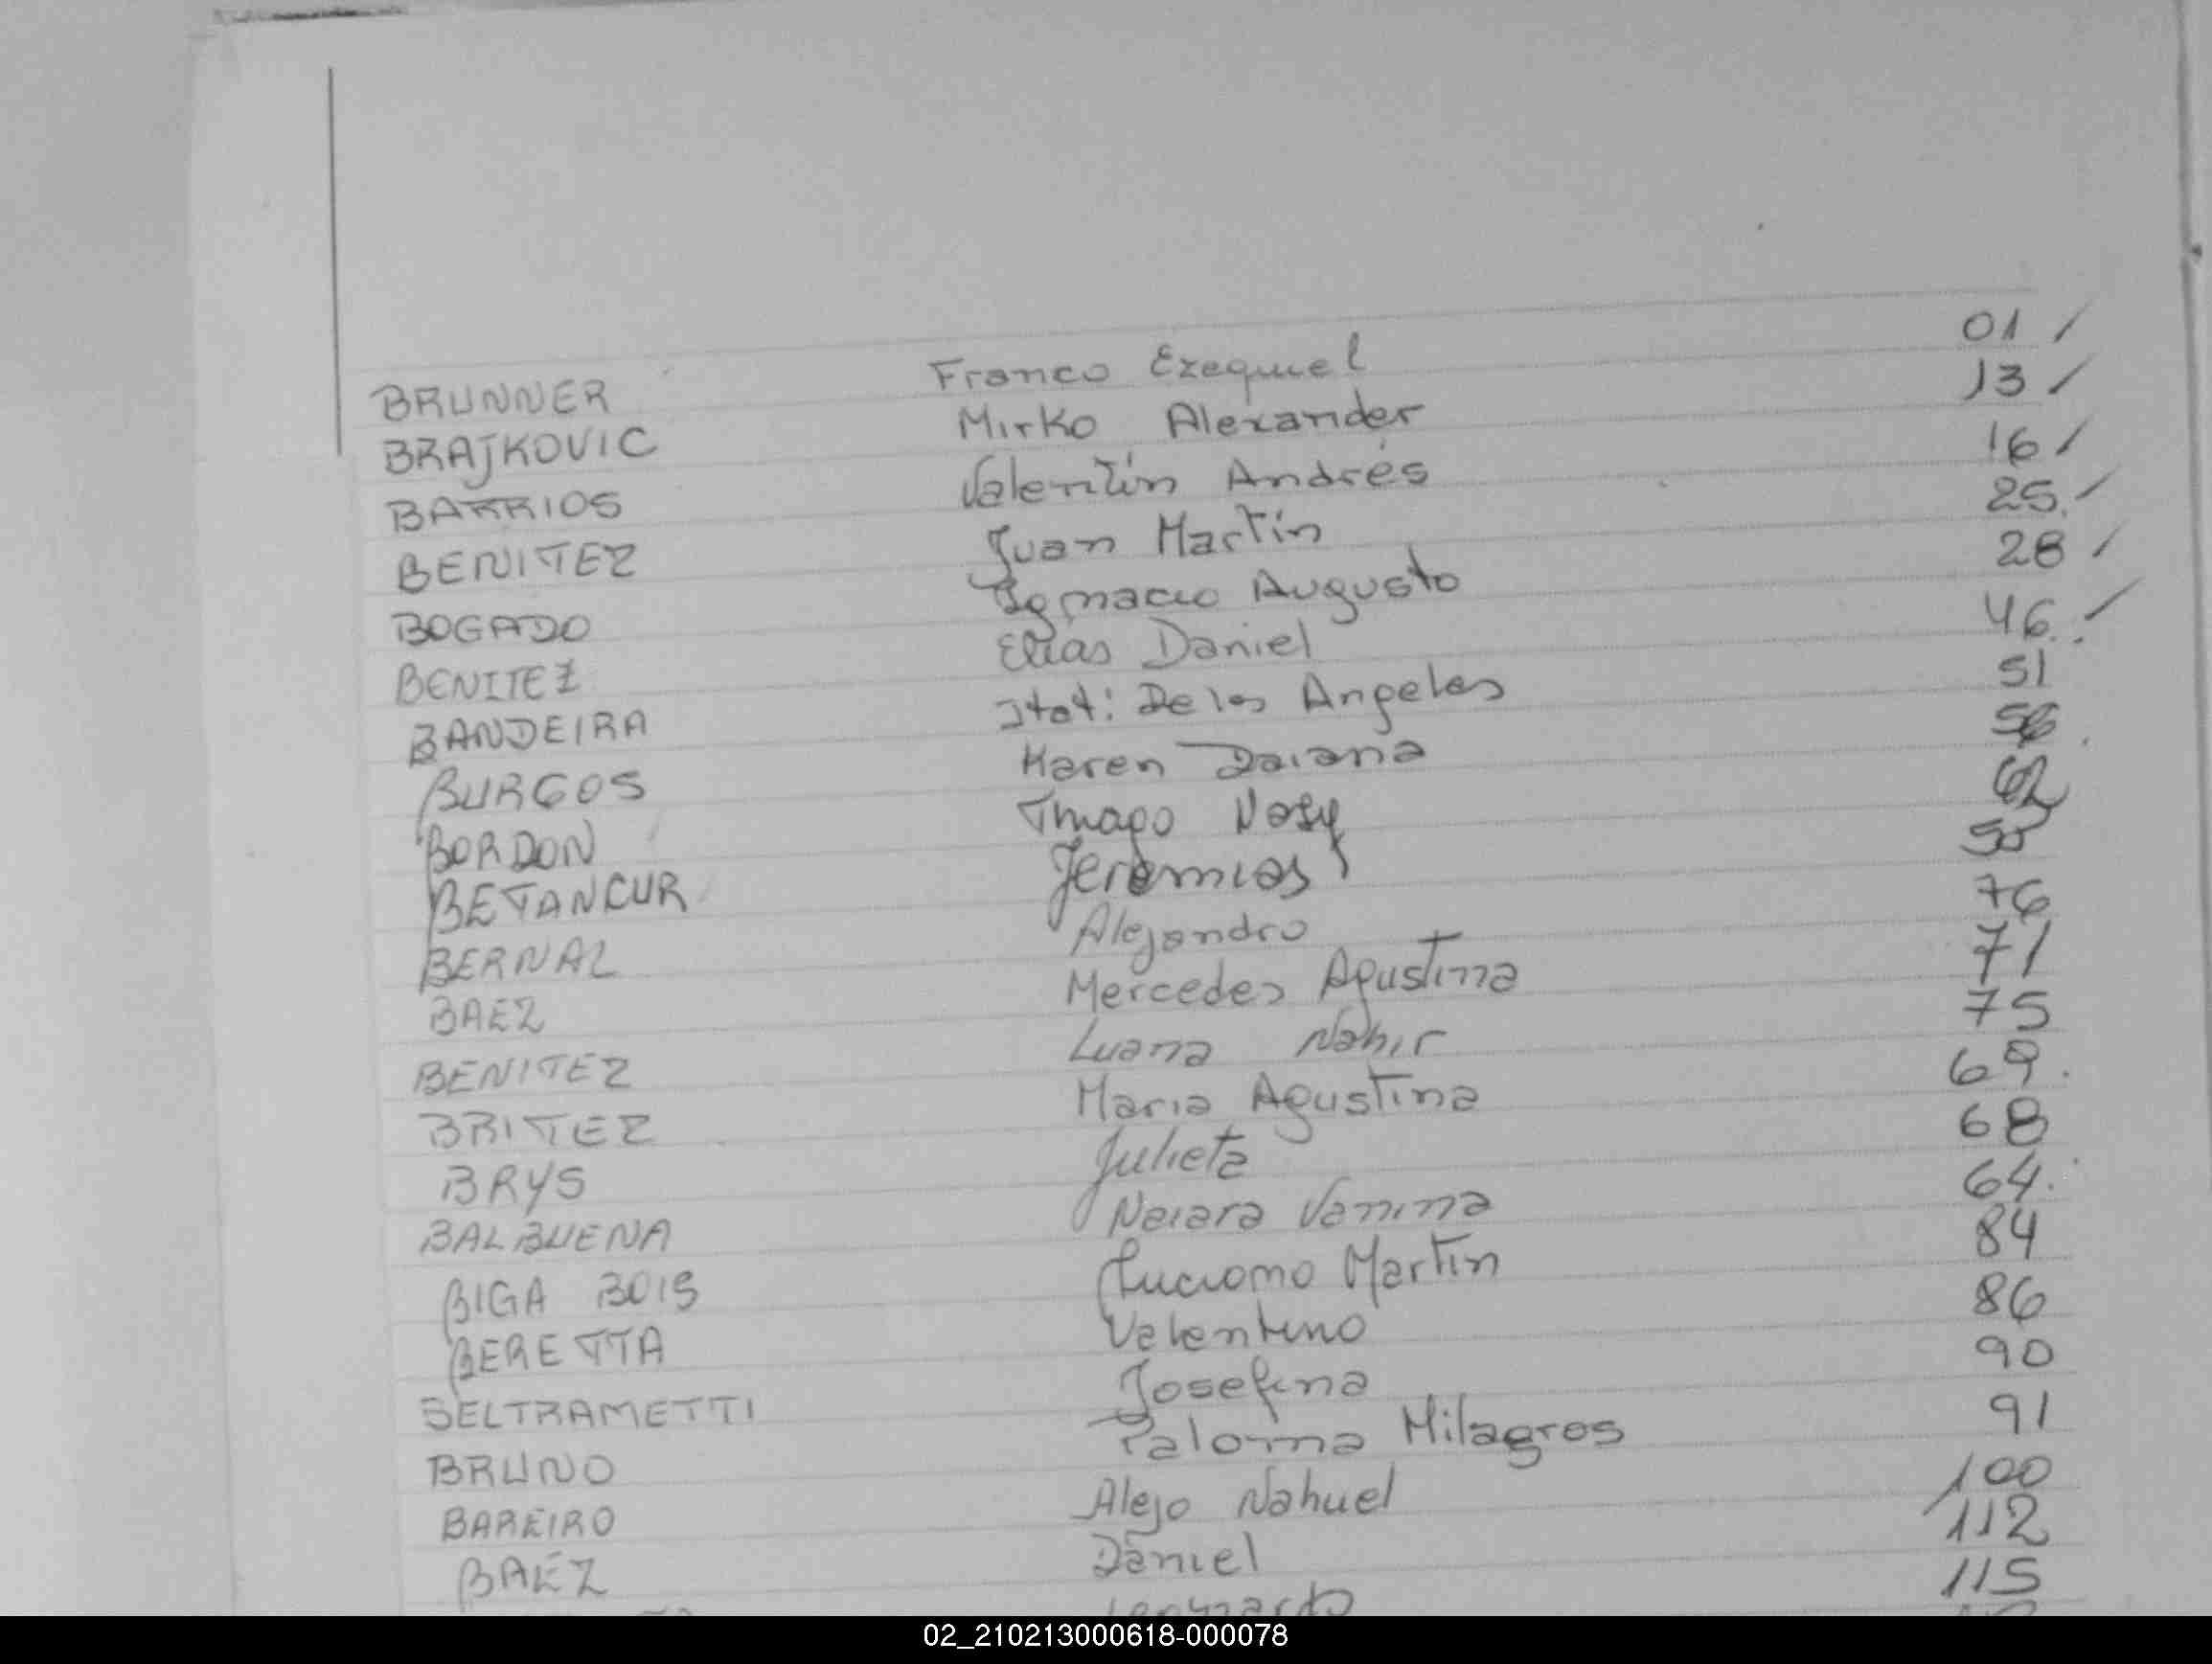 BRUNNER Franco Ezequiel 01 /
BRAJKOVIC Mirko Alexander 13 /
BARRIOS Valentín Andrés 16 /
BENITEZ Juan Martín 25. /
BOGADO Ignacio Augusto 28 /
BENITEZ Elias Daniel 46. /
BANDEIRA Itatí De los Angeles 51
BURGOS Karen Daiana 56
BORDON Thiago 62
BETANCUR Jeremias 55
BERNAL Alejandro 76
BAEZ Mercedes Agustina 71
BENITEZ Luana Nahir 75
BRITEZ Maria Agustina 69.
BRYS Julieta 68
BALBUENA Naiara Vanina 64.
BIGA BOIS Luciano Martin 84
BERETTA Valentino 86
BELTRAMETTI Josefina 90
BRUNO Paloma Milagros 91
BAREIRO Alejo Nahuel 100
BAEZ Daniel 112
115
02_210213000618-000078